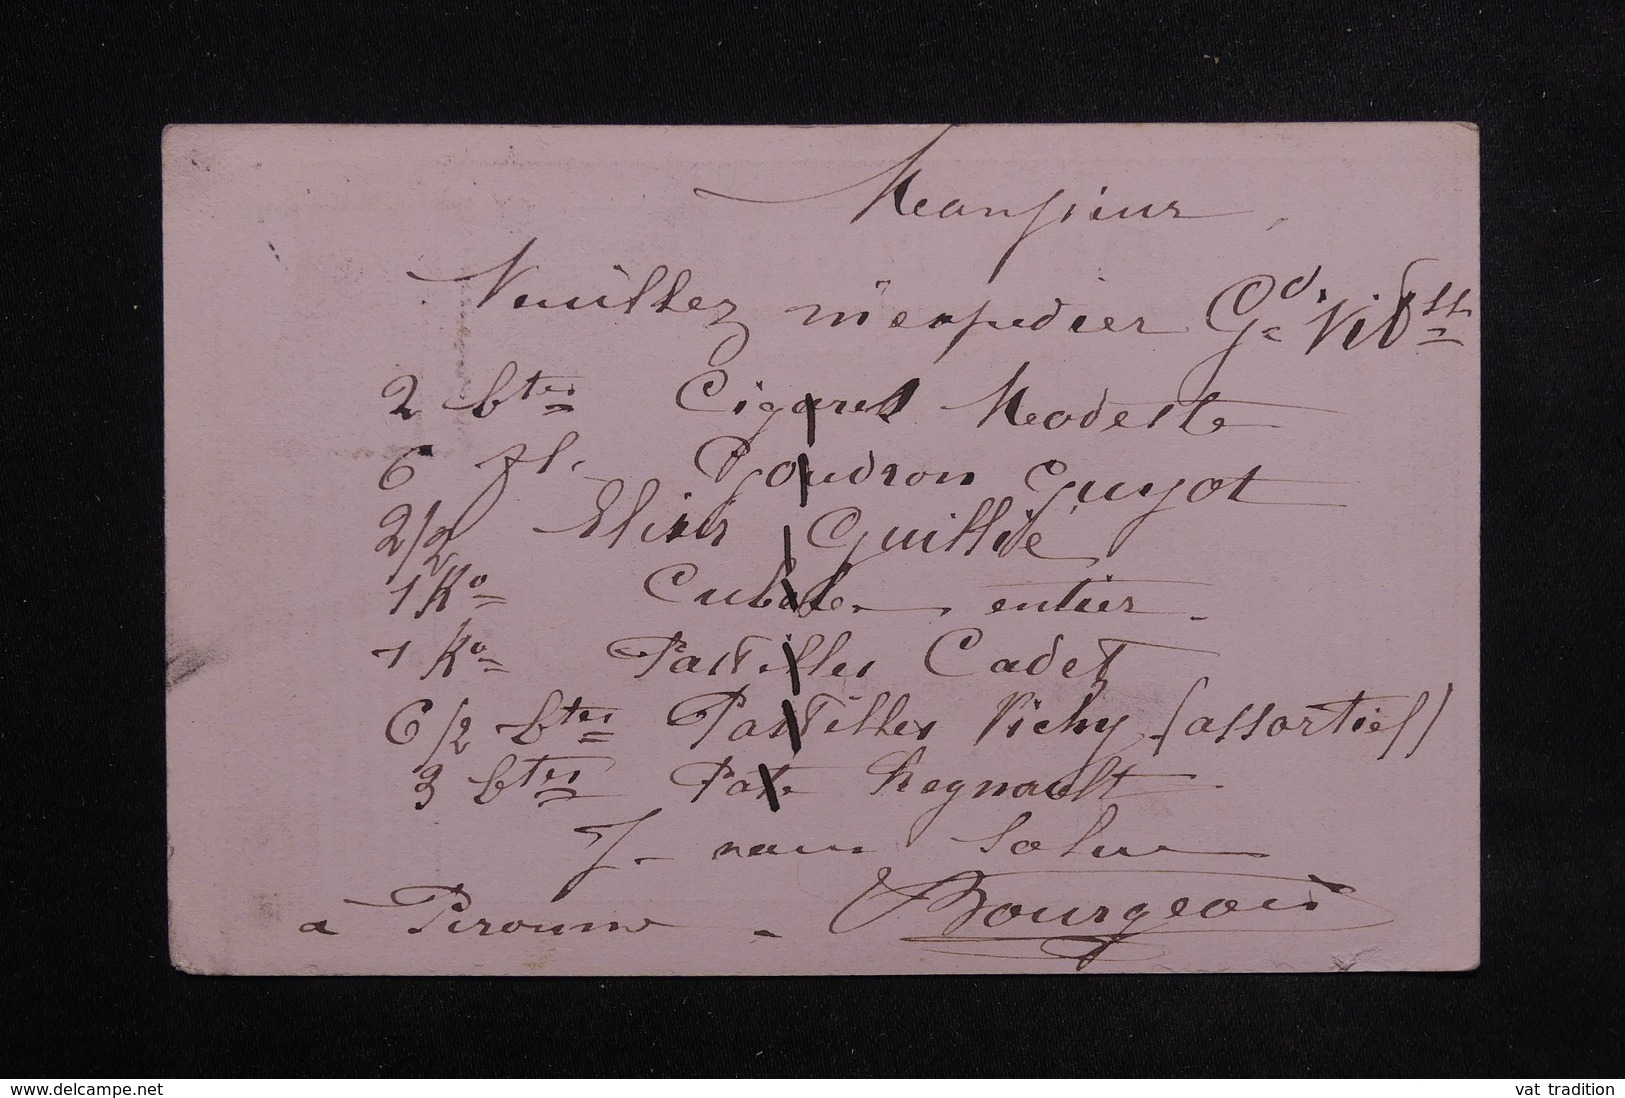 Monsieur,
Veuillez m'expedier Gde Vitsse
2 btes Cigares Modeste
6 fl. Goudron Guyot
2/2 Elixir Guillié
1 Ko Cubèbe entier.
1 Ko Pastilles Cadet
6/2 btes Pastilles Vichy (assorties)
3 btes Pate Regnault
J. vous Salue
à Peronne - Bourgeois
www.delcampe.net
vat tradition